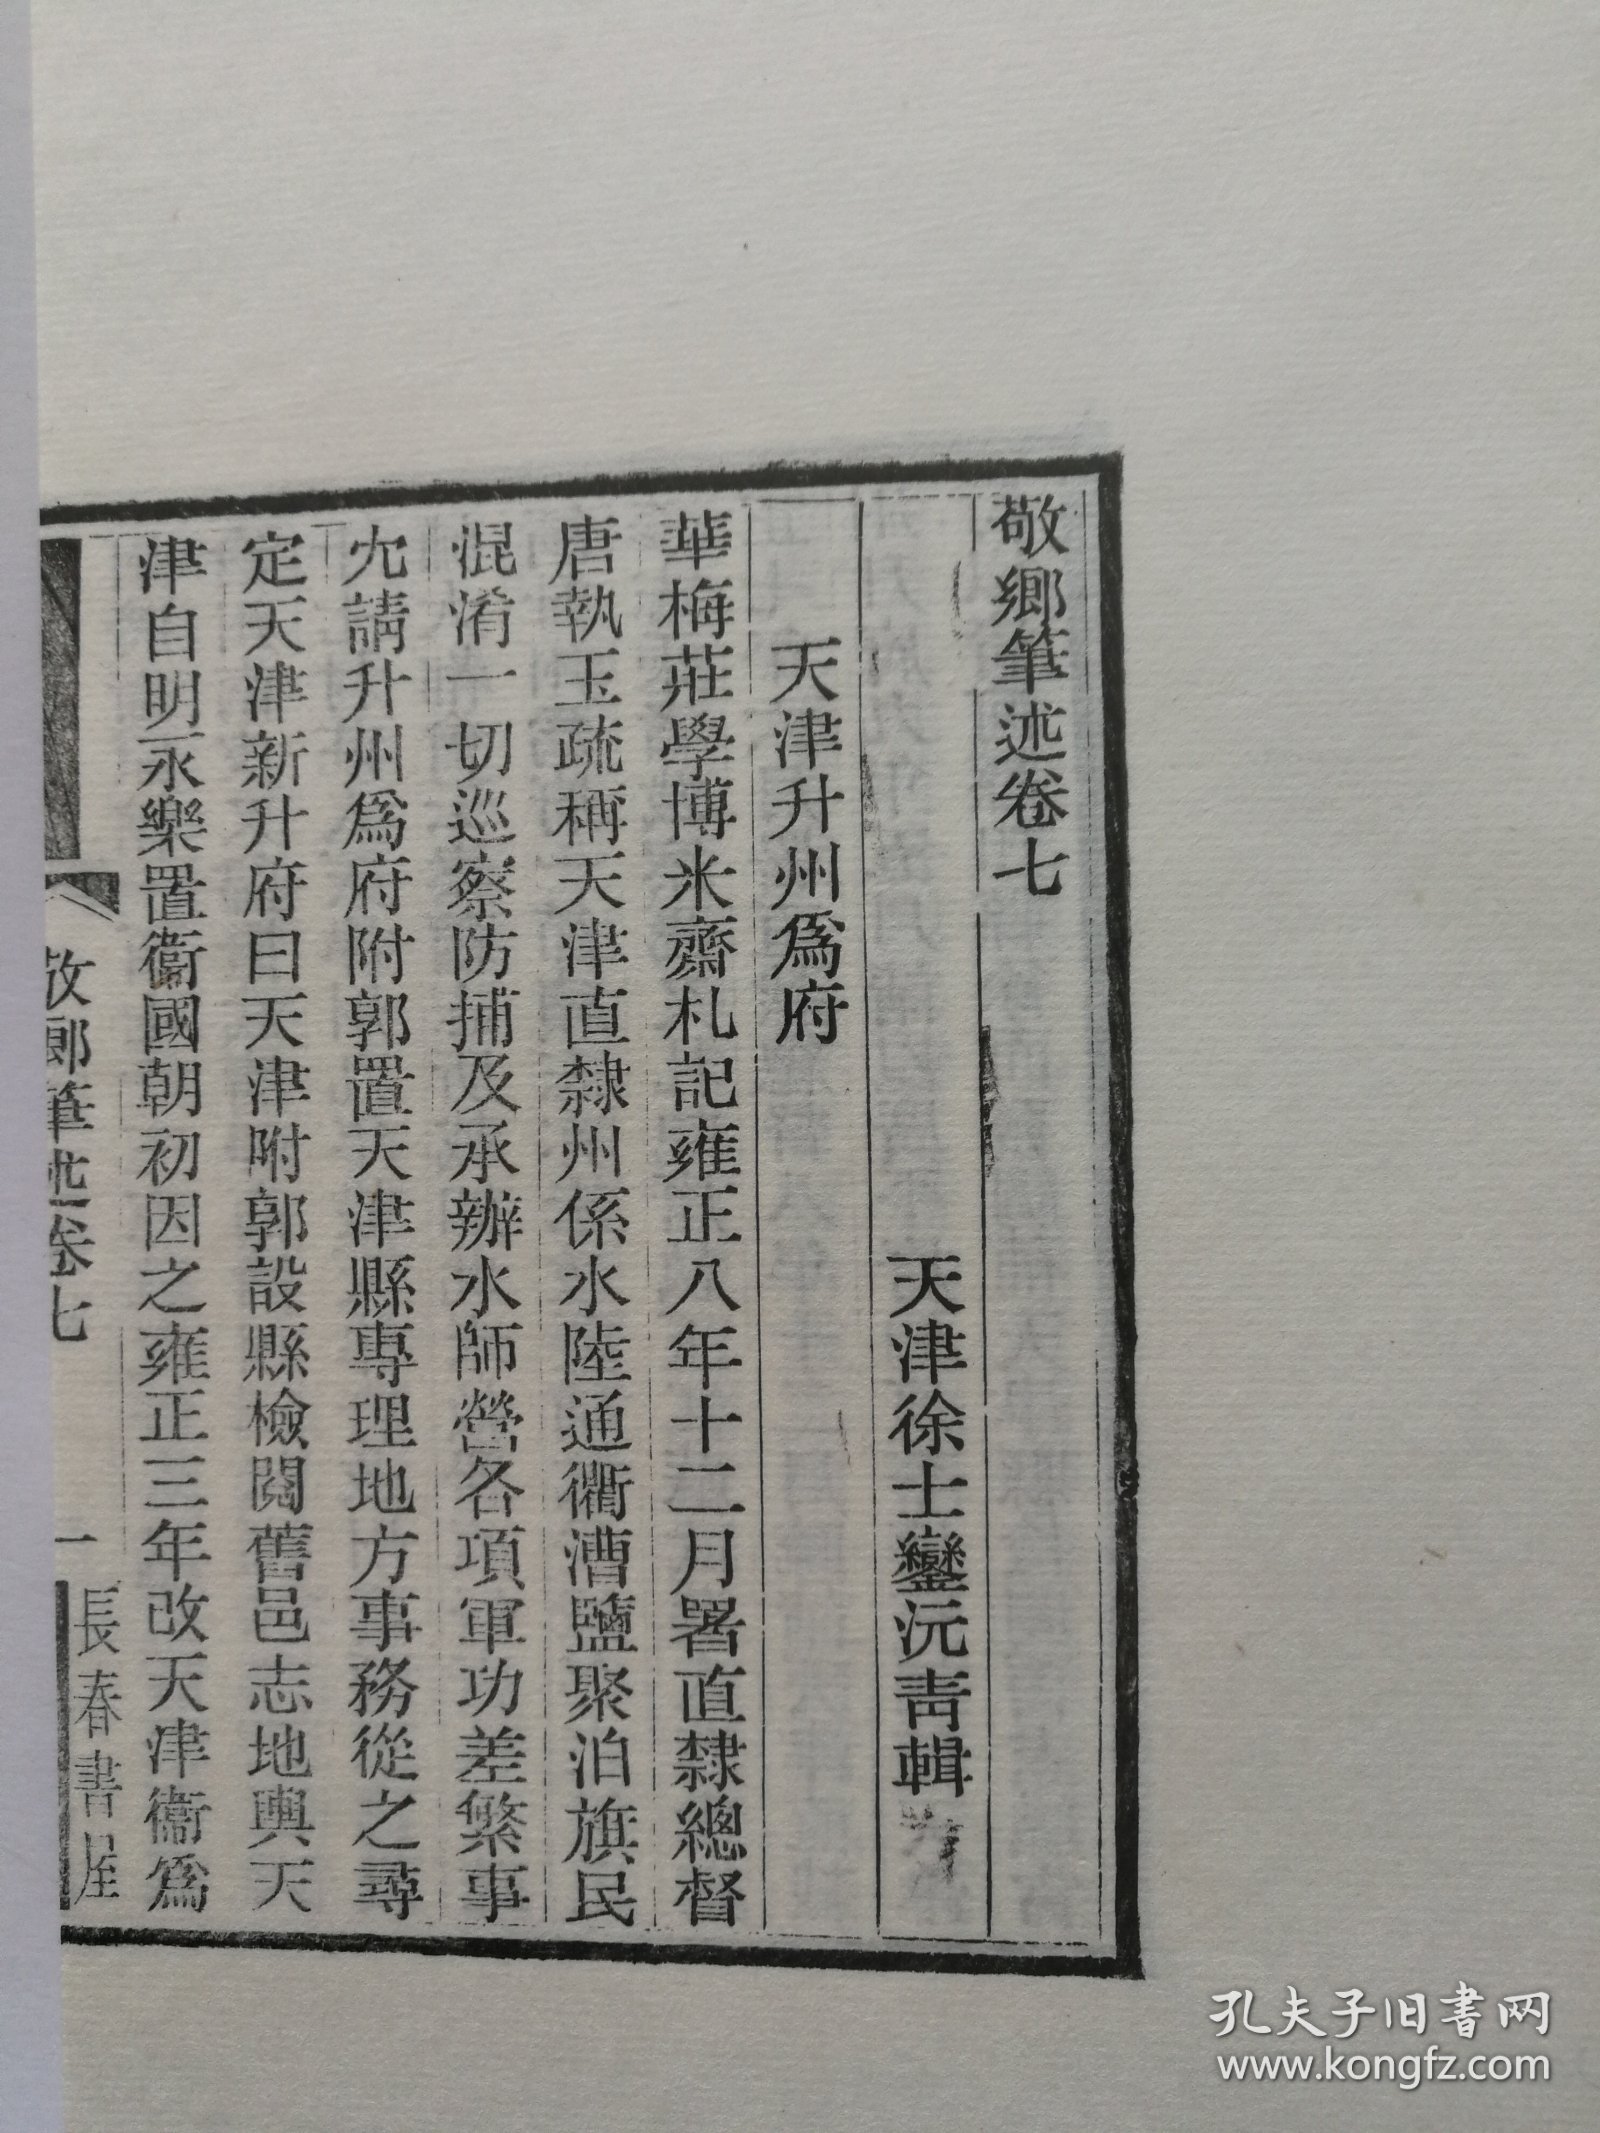 敬鄉筆述卷七
天津徐士鑾沅青輯
天津升州爲府
華梅莊學博米齋札記雍正八年十二月署直隸總督
唐執玉疏稱天津直隸州係水陸通衢漕鹽聚泊旗民
混淆一切巡察防捕及承辦水師營各項軍功差繁事
冘請升州爲府附郭置天津縣專理地方事務從之尋
定天津新升府曰天津附郭設縣檢閱舊邑志地輿天
津自明永樂置衞國朝初因之雍正三年改天津衞爲
敬鄉筆述卷七
一
長春書屋
孔夫子旧书网
www.kongfz.com